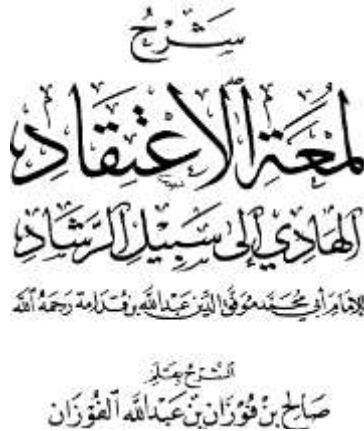 شَرْحُ
لُمْعَةِ الِاعْتِقَادِ
الهَادِي إِلَى سَبِيلِ الرَّشَادِ
للإمام أبي محمد موفق الدين عبد الله بن قدامة رحمه الله
الشرح بقلم
صَالِح بْن فَوْزَان بْن عَبْدِ اللَّه الْفَوْزَان